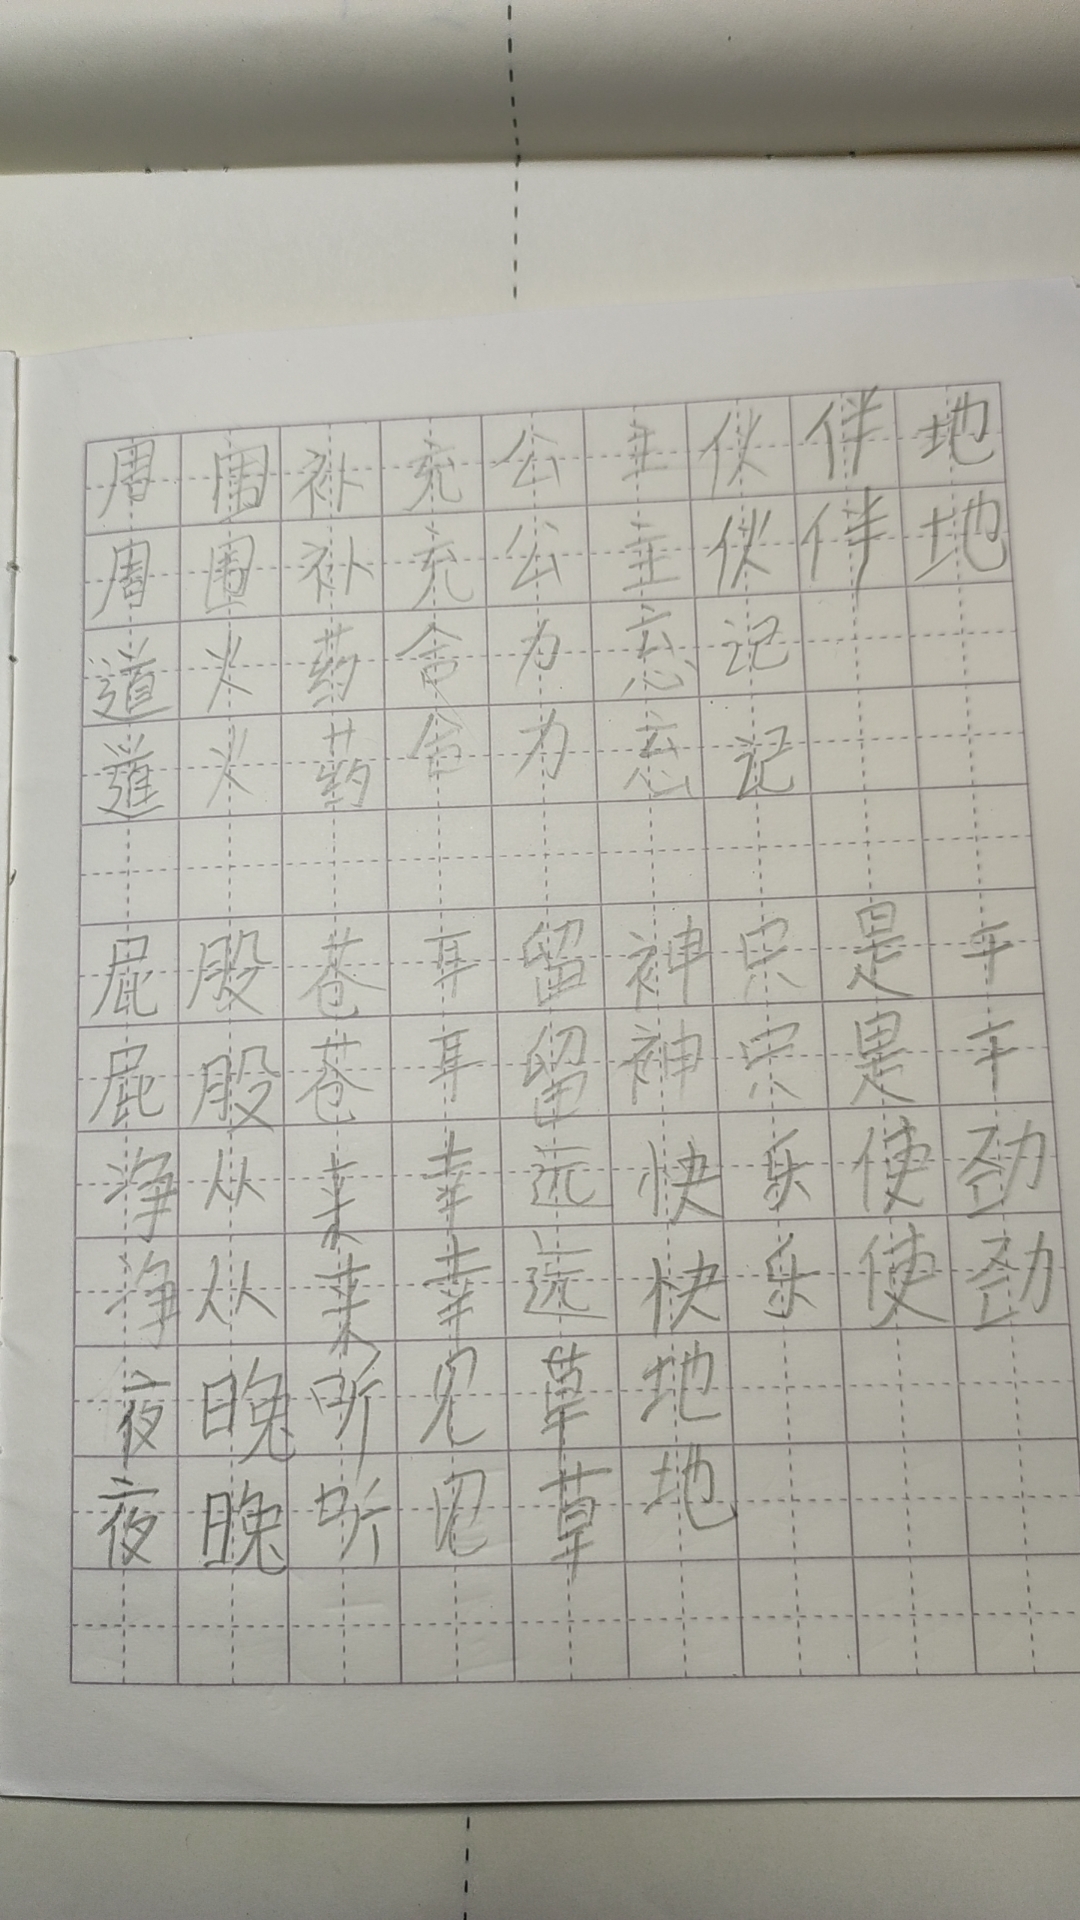 周围补充公主伙伴地
周围补充公主伙伴地
道火药舍力忘记
道火药舍力忘记
屁股苍耳留神只是干
屁股苍耳留神只是干
净从来幸远快乐使劲
净从来幸远快乐使劲
夜晚听见草地
夜晚听见草地